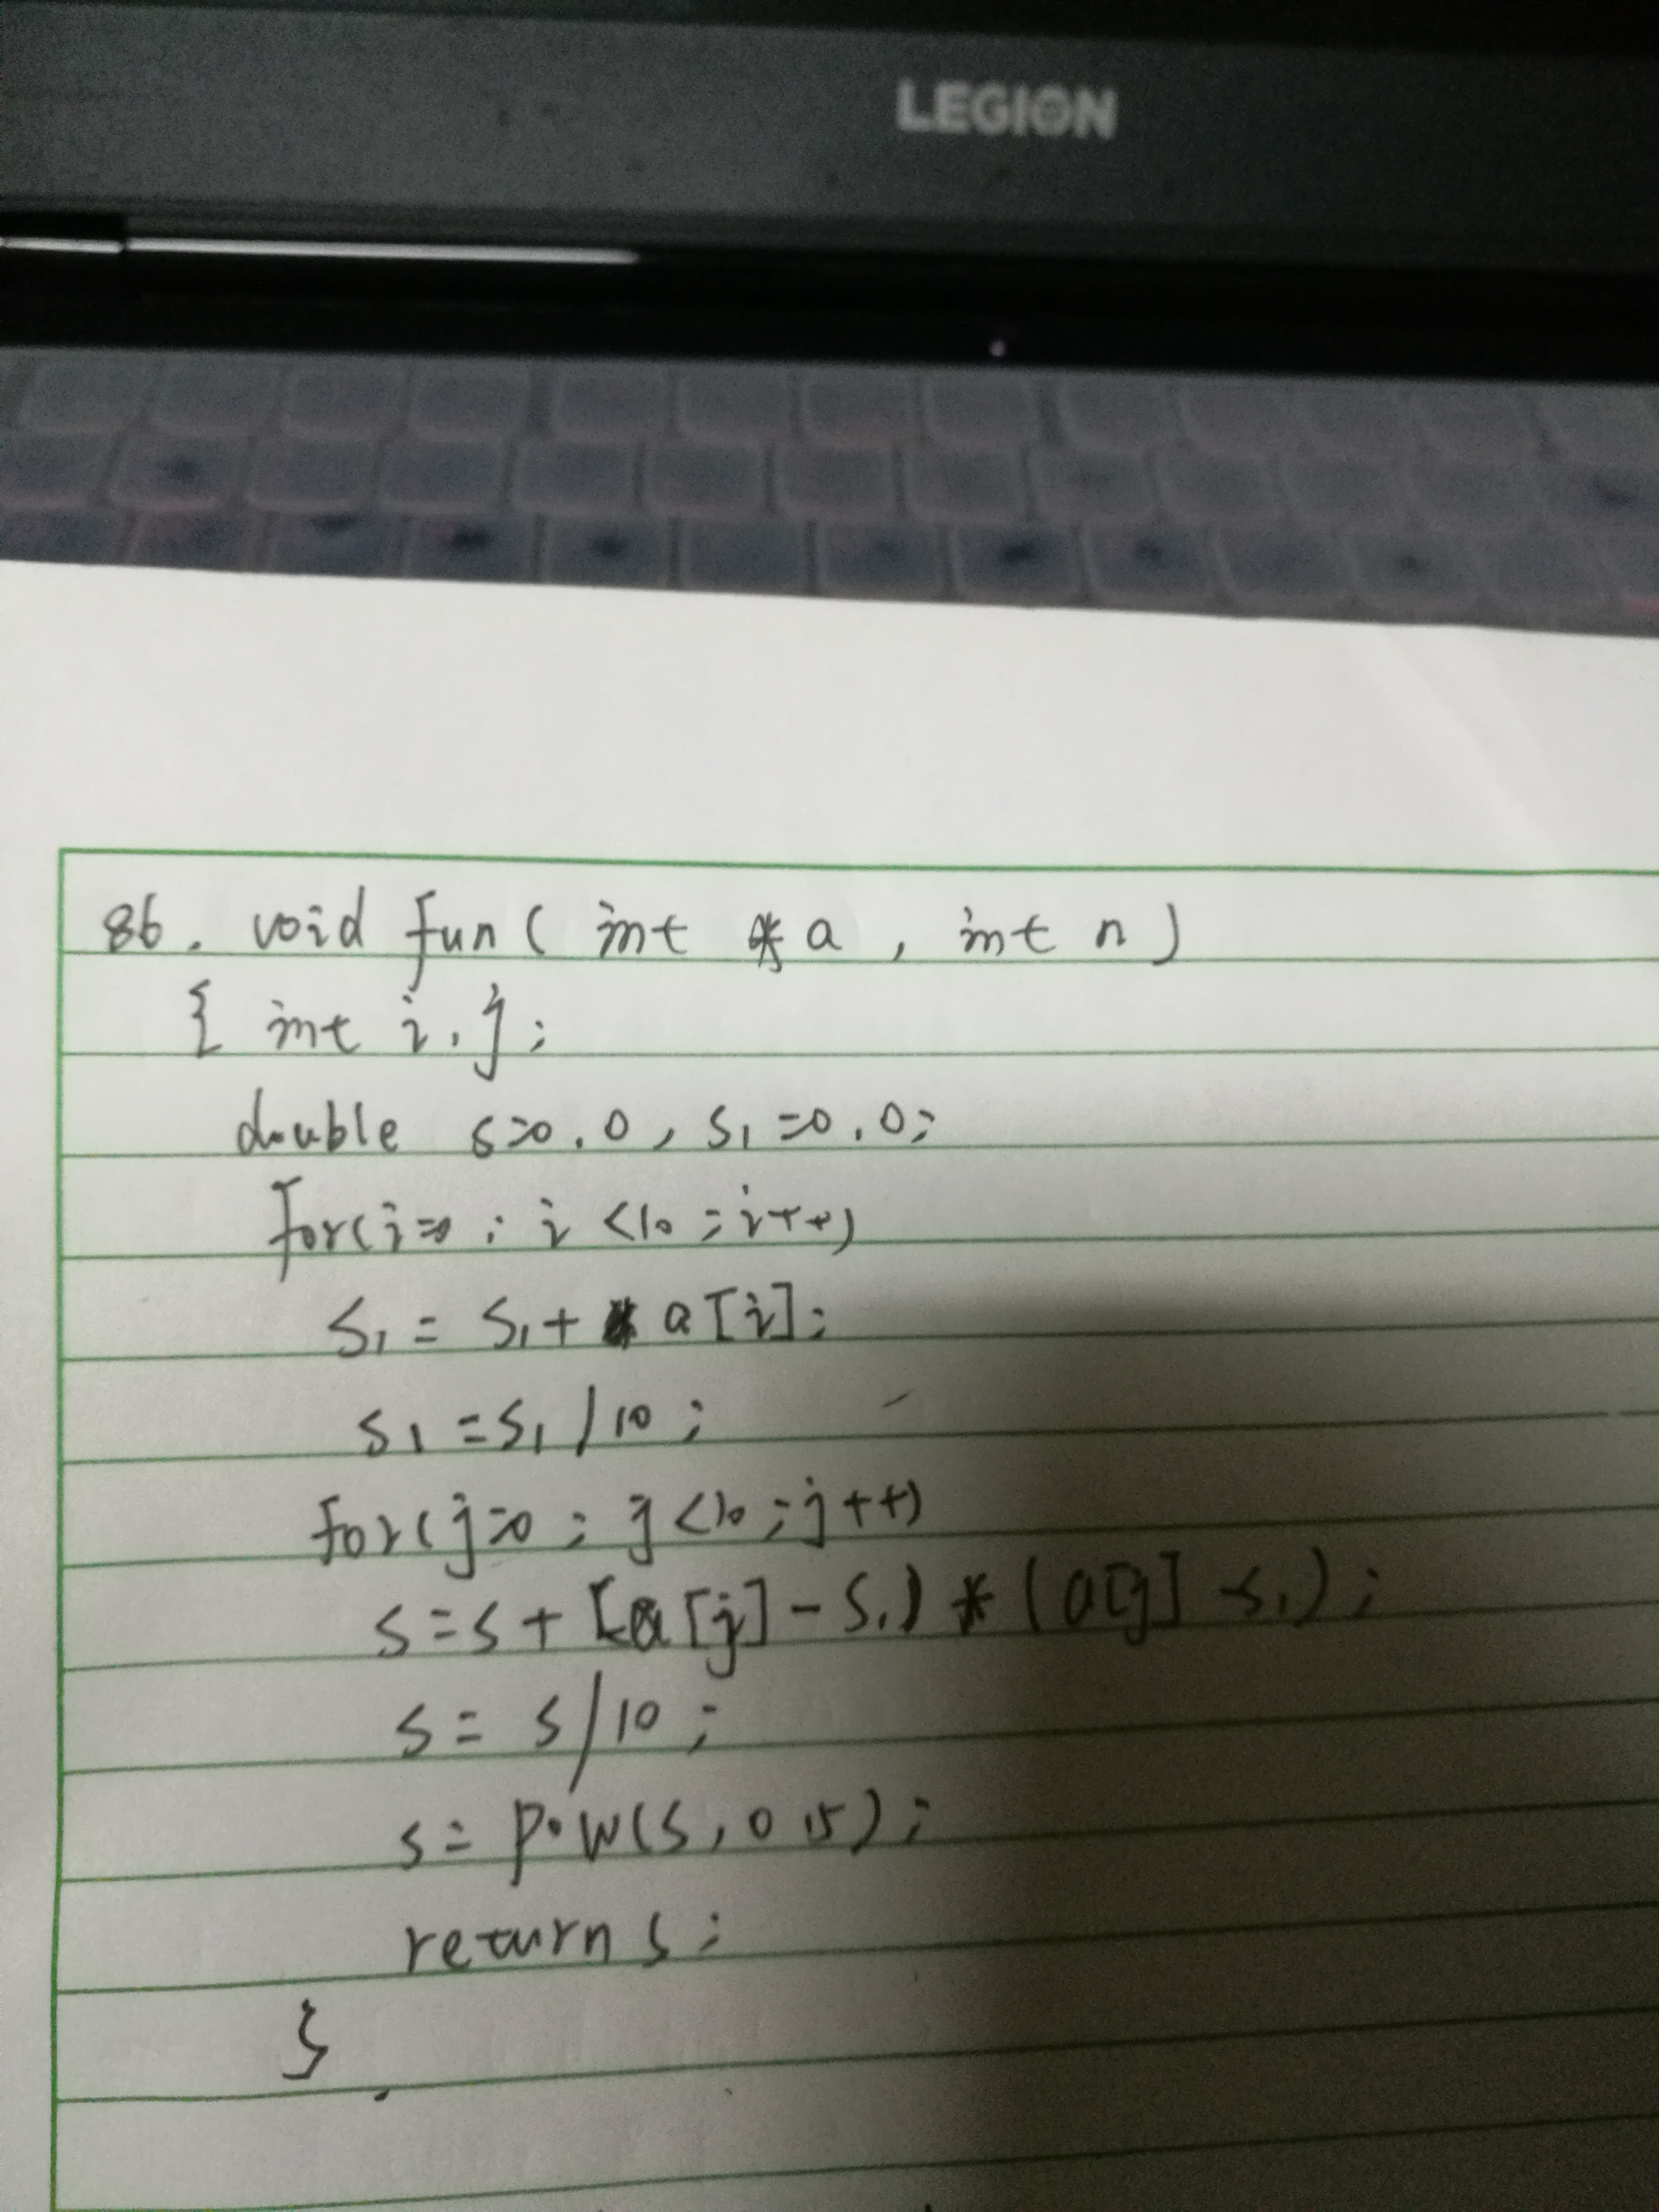 LEGION
86. void fun( int *a, int n)
{ int i,j;
double s=0.0, s1=0.0;
for(i=0; i<10; i++)
s1 = s1+ a[i];
s1 = s1/10;
for(j=0; j<10; j++)
s=s+(a[j]-s1)*(a[j]-s1);
s= s/10;
s= pow(s,0.5);
return s;
}